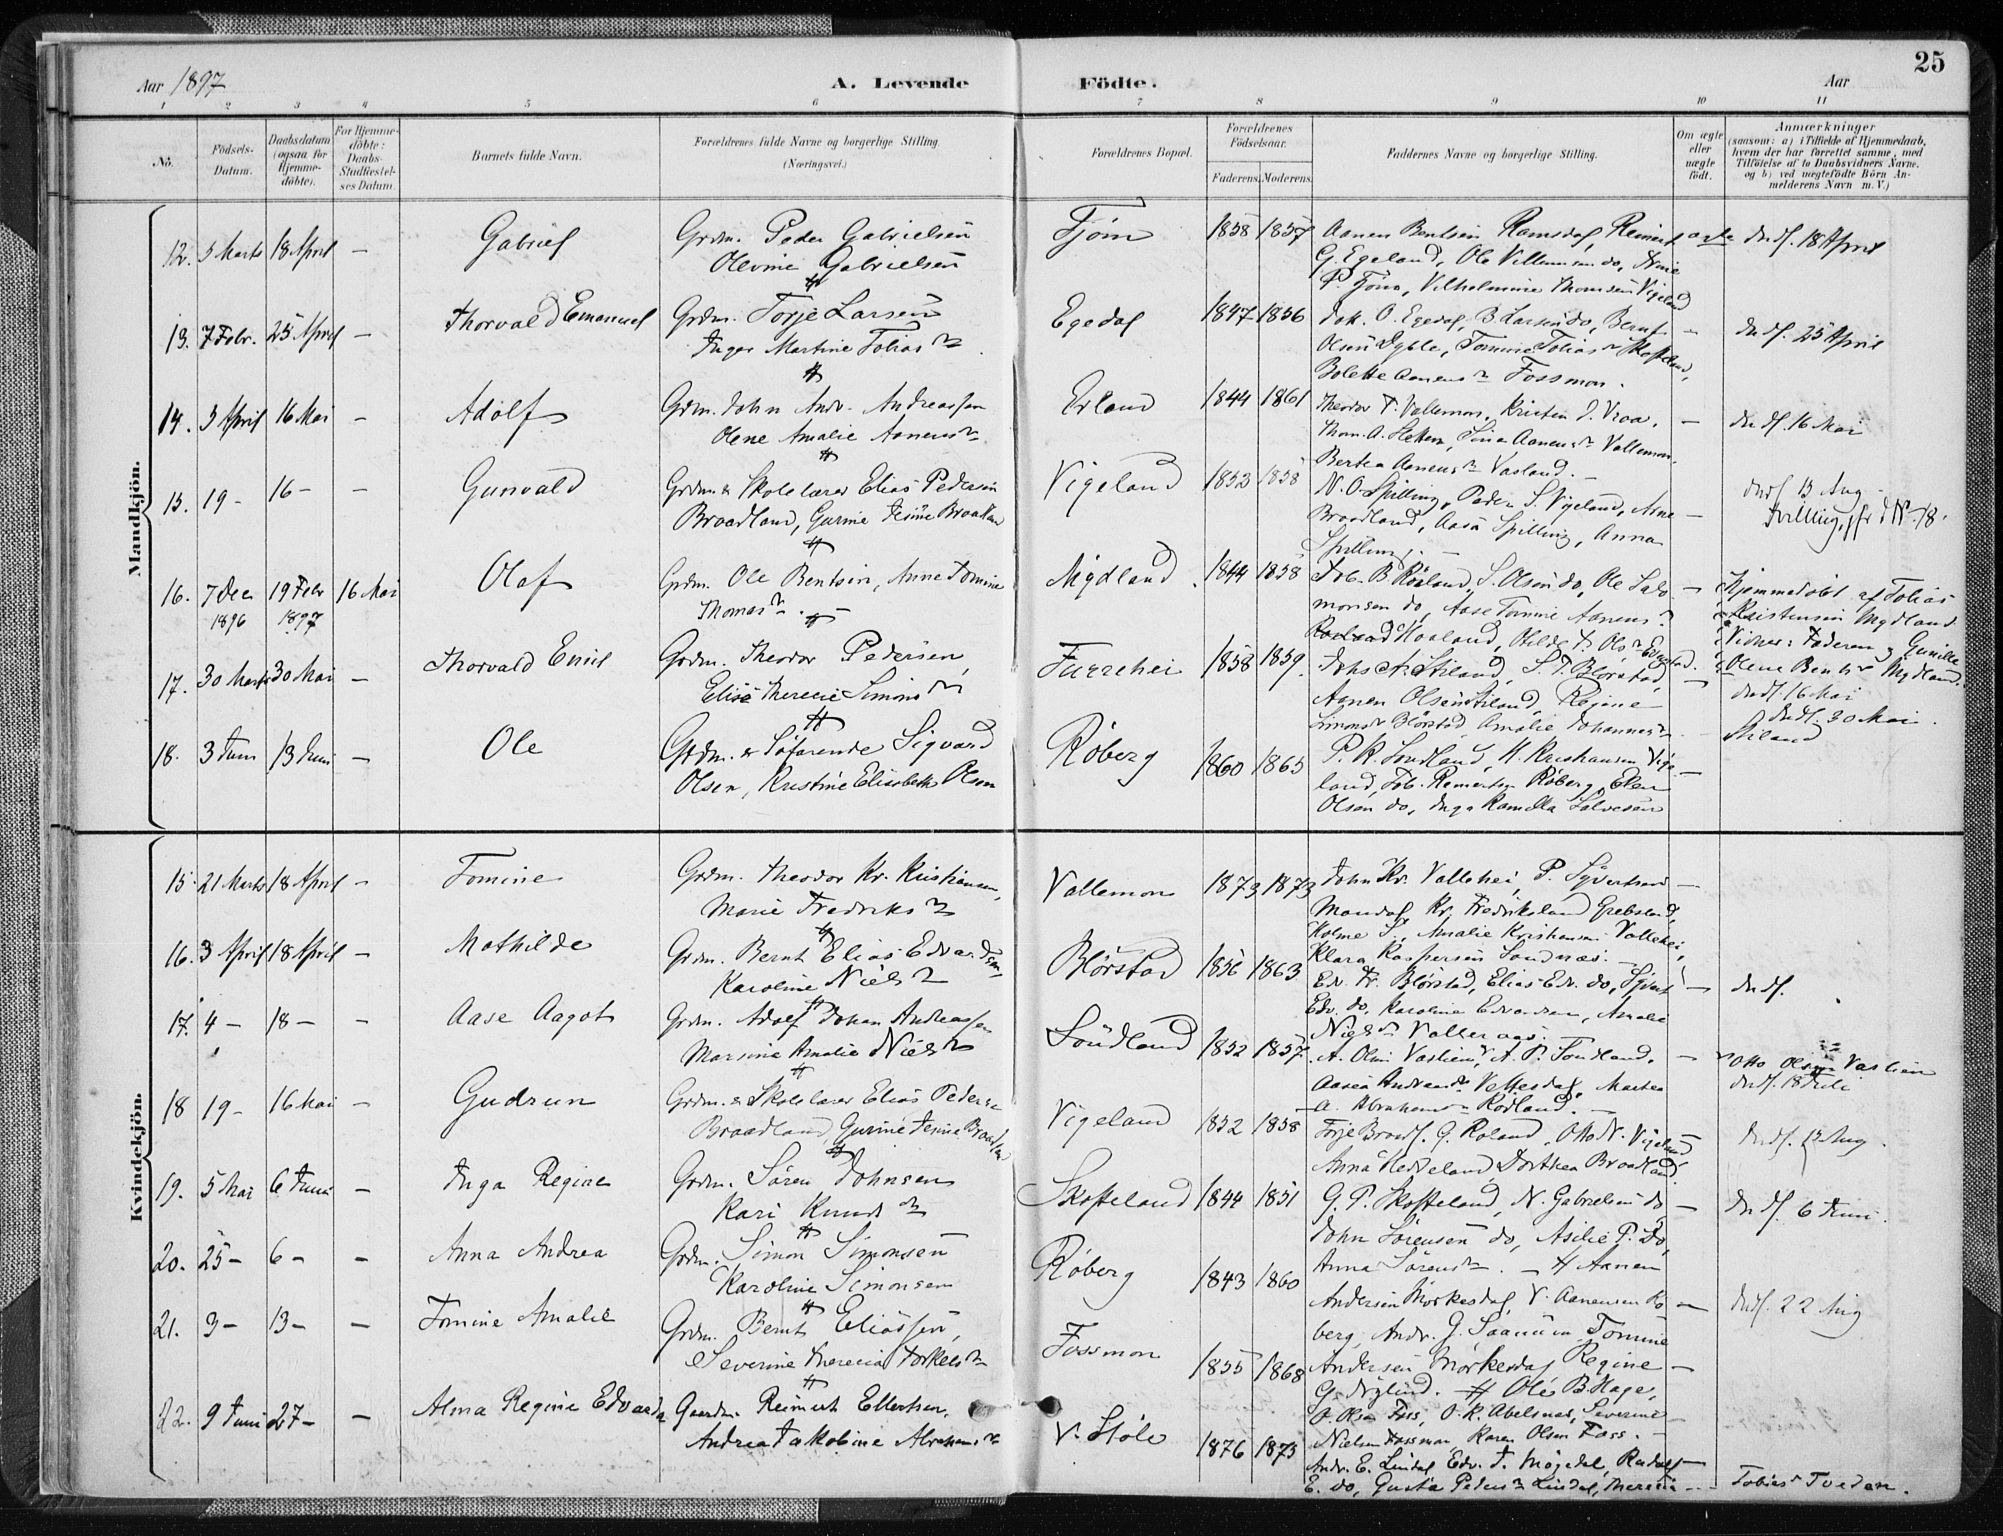 25
Aar 1897
A. Levende Födte.
Aar
1 2 3 4 5 6 7 8 9 10 11
No.
Födsels-Datum.
Daabsdatum (ogsaa for Hjemme-döbte).
For Hjemme-döbte: Daabs-Stadfæstel-ses Datum.
Barnets fulde Navn.
Forældrenes fulde Navne og borgerlige Stilling.
(Næringsvei.)
Forældrenes Bopæl.
Forældrenes Födselsaar.
Faderens. Moderens.
Faddernes Navne og borgerlige Stilling.
Om ægte eller uægte födt.
Anmærkninger
(saasom: a) i Tilfælde af Hjemmedaab,
hvem der har forrettet samme, med
Tilföielse af to Daabsvidners Navne.
og b) ved uægtefödte Börn An-
melderens Navn m. V.)
Mandkjön.
12. 5 Marts 18 April — Gabriel
Grdm. Peder Gabrielsen
Olevine Gabrielsen
Fjöm 1858 1857
Aanen Bentsen Ramsdal, Reinert
G. Egeland, Ole Villumsen do,
P. Fjöm, Vilhelmine Thomsen Vigeland
ægte
dndf. 18 April
13. 7 Febr. 25 April — Thorvald Emanuel
Grdm. Torje Larsen
Inger Martine Tobiasdr
Egedal 1847 1856
Jak. O. Egedal, B. Larsen do, Bernt
Olsen Dyble, Tomine Tobiasdr Skofteland,
Bolette Aanensdr Fossmon.
dndf. 25 April
14. 3 April 16 Mai — Adolf
Grdm. John Andr. Andreassen
Olene Amalie Aanensdr
Erland 1844 1861
Theodor T. Vallemon, Kristen J. Vraa,
Thom. A. Stokken, Sina Aanensdr Vallemon,
Bertea Aanensdr Vasland.
dndf. 16 Mai
15. 19 — 16 — — Gunvald
Grdm. & Skolelærer Elias Pedersen
Braadland, Gurine Jesine Braadland
Vigeland 1852 1858
N. O. Spilling, Peder S. Vigeland, Arne
Braadland, Aasa Spilling, Anna
Spilling.
dndf 15 Aug
Tvilling, jfr. No 18.
16. 7 Dec 1896 19 Febr 1897 16 Mai Olaf
Grdm. Ole Bentsen, Anne Tomine
Thomasdr.
Mydland. 1844 1858
Tob. B. Röiland, S. Olsen do, Ole Salo-
monsen do, Aase Tomine Aanensdr
Haaland,
Hjemmedöbt af Tobias
Kristensen Mydland
Vidner: Faderen og Gunille
Olene Bentsdr Mydland.
dndf. 16 Mai
17. 30 Marts 30 Mai — Thorvald Emil
Grdm. Theodor Pedersen,
Elise Therecie Simonsdr
Furrehei 1858 1859.
Johs A. Stiland, S. T. Blörstad,
Aanen Olsen Stiland, Regine
Simonsdr Blörstad, Amalie Johannesdr
Stiland
dndf. 30 Mai.
18. 3 Juni 13 Juni — Ole
Grdm. & Söfarende Sigvard
Olsen, Kristine Elisabeth Olsen
Röberg 1860 1865
P. K. Sundland, K. Kristiansen Vige-
land, Tob. Reinertsen Röberg, Elen
Olsen do, Inga Kamilla Salvesen
Kvindekjön.
15. 21 Marts 18 April — Tomine
Grdm. Theodor Kr. Kristiansen,
Marie Fredriksdr
Vallemon 1873 1873
John Kr. Vallehei, P. Syvertsen
Mandal, Kr. Fredriksland Grebstad,
Holme S., Amalie Kristiansen Vallehei,
Klara Kaspersen Sandnæs.
16. 3 April 18 April — Mathilde
Grdm. Bernt Elias Edvardsen,
Karoline Nielsdr
Blörstad 1856 1863
Edv. Tr. Blörstad, Elias Edv. do, Sjvert
Edv. do, Karoline Edvardsen, Amalie
Nielsdr Valleraas.
dndf.
17. 4 — 18 — — Aase Aagot
Grdm. Adolf Johan Andreassen
Marsina Amalie Nielsdr
Sundland 1852 1857.
A. Olsen Vaslien, A. P. Sundland,
Aasea Andreasdr Vettesdal, Martea
A. Abrahamsdr Rödland.
Otto Olsen Vaslien
dndf. 18 Juli
18 19 — 16 Mai — Gudrun
Grdm. & Skolelærer Elias Pedersen
Braadland, Gurine Jesine Braadland
Vigeland 1852 1858
Torje Braadl. G. Röland, Otto N. Vigeland
Anna Heddeland, Dorthea Braadland.
dndf. 15 Aug.
19. 5 Mai 6 Juni — Inga Regine
Grdm. Sören Johnsen
Kari Knudsdr
Skofteland 1844 1851
G. P. Skofteland, N. Gabrielsen do,
John Sörensen do, Asilie P. do,
Anna Sörensdr.
dndf. 6 Juni.
20. 25 — 6 — — Anna Andrea
Grdm. Simon Simonsen
Karoline Simonsen
Röberg 1843 1860
Aanen
Andersen Mörkesdal, V. Aanensen Rö-
berg, Andr. G. Saanum, Tomine
Andersen Mörkesdal, Regine
G. Nylund.
dndf. 22 Aug
21. 3 — 13 — — Tomine Amalie
Grdm. Bernt Eliassen,
Severine Therecia Torkelsdr
Fossmon 1855 1868
Ole B. Hage,
O. Olsen Foss, O. K. Abelsnæs, Severine
Nielsen Fossmon, Karen Olsen Foss.
22. 9 Juni 27 — — Alma Regine Edvarda
Gaardm. Reinert Ellertsen,
Andrea Jakobine Abrahamsdr
V. Stöle 1876 1873
Andr. E. Lindal, Edv. J. Mögedal, Rudolf
E. do, Gusta Pedersdr Lindal, Therecia
Tobiasdr Tveden.